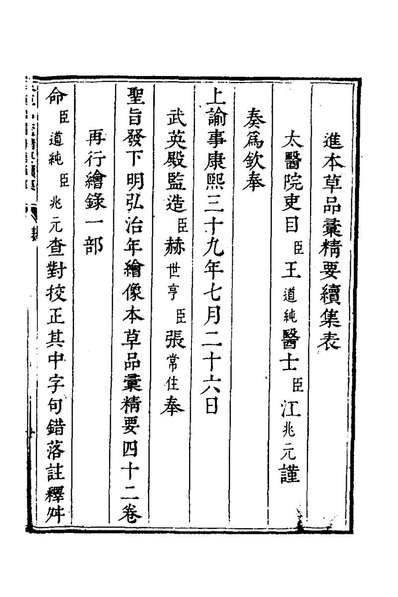 進本草品彙精要續集表
太醫院吏目臣王道純醫士臣江兆元謹
奏為欽奉
上諭事康熙三十九年七月二十六日
武英殿監造臣赫世亨臣張常住奉
聖旨發下明弘治年繪像本草品彙精要四十二卷
再行繪錄一部
命臣道純臣兆元查對校正其中字句錯落註釋舛